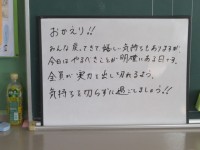 おかえり!!
みんな戻ってきて嬉しい気持ちもありますが、
今日はやるべきことが明確にある日です。
全員が実力を出し切れるよう、
気持ちを切らずに過ごしましょう!!